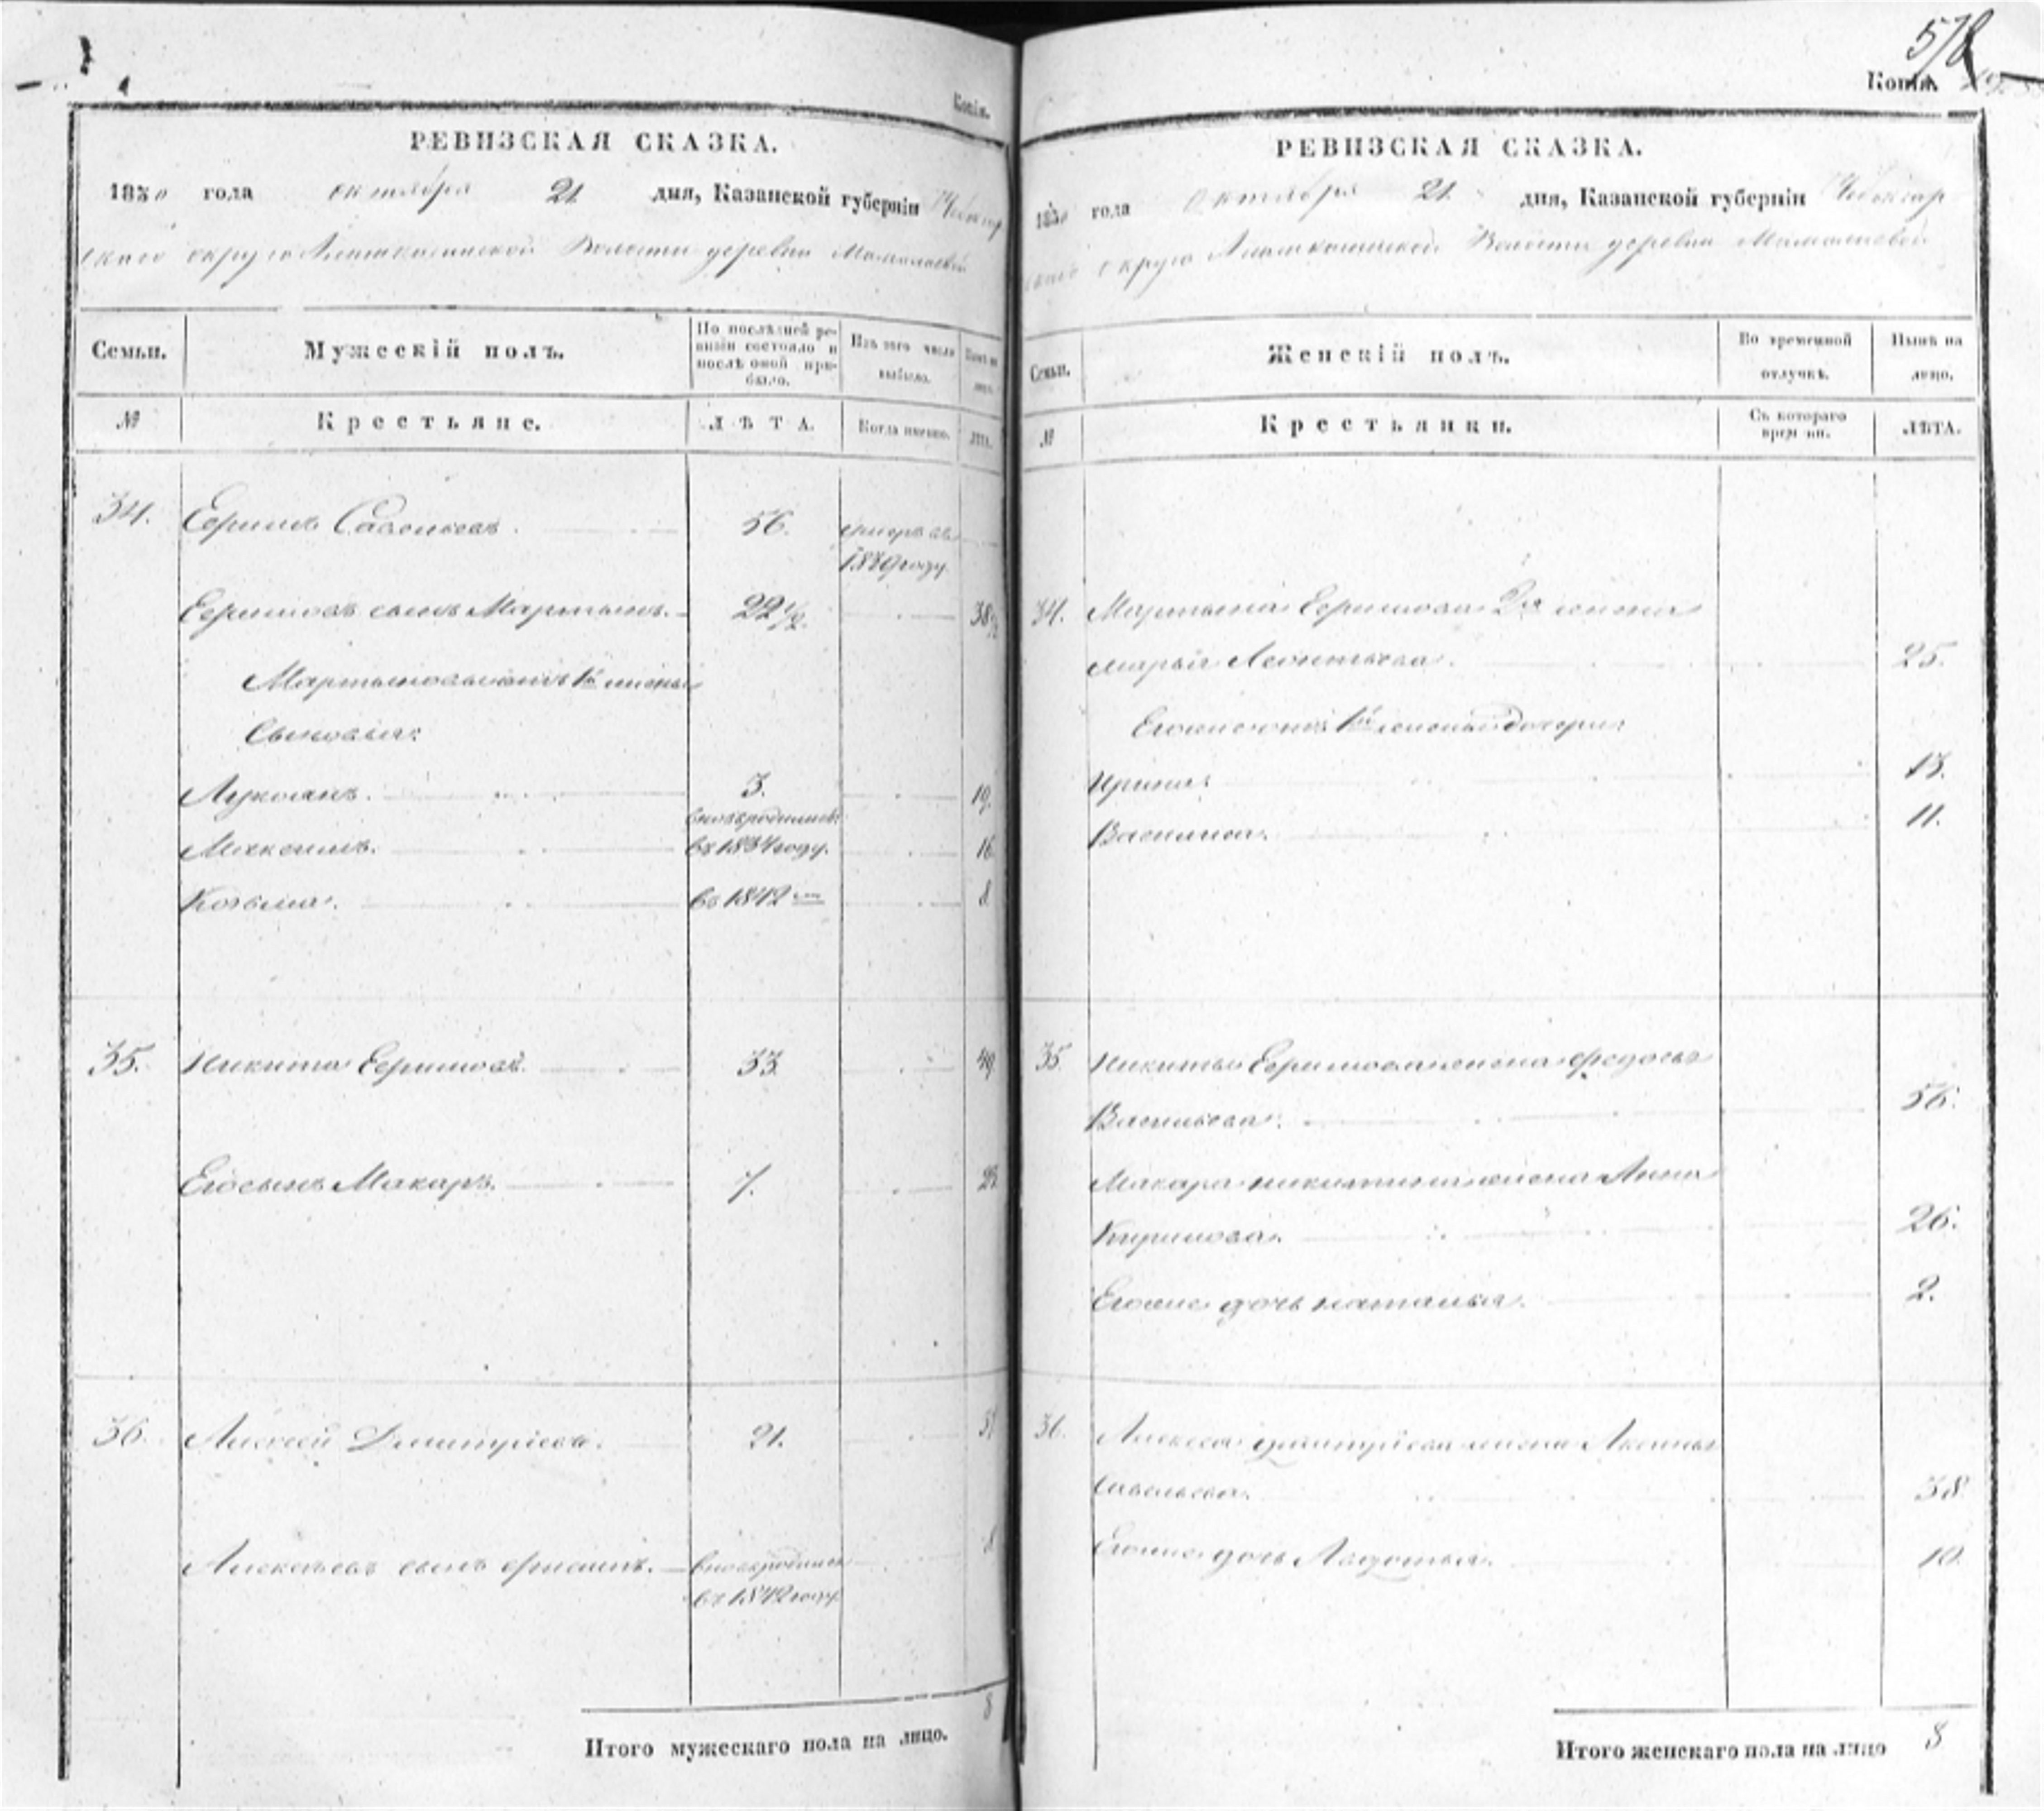 578
Копія.
РЕВИЗСКАЯ СКАЗКА.
1850 года октября 21 дня, Казанской губерніи Чебоксар
скаго округа волости деревни
Семьи.
Мужескій полъ.
По послѣдней ре-
визіи состояло и
послѣ оной при-
было.
Изъ того числа
выбыло.
Нынѣ на
лицо.
№
Крестьяне.
ЛѢТА.
Когда именно.
ЛѢТА.
34. Ефимъ Савельевъ. 56. умеръ въ
1849 году.
Ефимовъ сынъ Мартынъ. 22 1/2. 38 1/2
Мартыновы отъ 1й жены
Сыновья:
Лукоянъ. 3. 19.
вновь родились
Максимъ. въ 1834 году. 16
Козьма. въ 1842 м 8
35. Никита Ефимовъ. 33. 49
Его сынъ Макаръ. 7. 23
36. Алексей Дмитріевъ. 21. 37
Алексеевъ сынъ вновь родился 8
въ 1842 году
8
Итого мужескаго пола на лицо.
Копія.
РЕВИЗСКАЯ СКАЗКА.
1850 года Октября 21 дня, Казанской губерніи Чебоксар
скаго округа Волости деревни
Семьи.
Женскій полъ.
Во временной
отлучкѣ.
Нынѣ на
лицо.
№
Крестьянки.
Съ котораго
времени.
ЛѢТА.
34. Мартына Ефимова 2я жена
Марья Леонтьева. 25.
Его же отъ 1й жены дочери
Ирина. 13.
Василиса. 11.
35. Никиты Ефимова жена Федосья
Васильева. 56.
Макара Никитина жена Анна
Ефимова. 26.
Его же дочь Наталья. 2.
36. Алексея Дмитріева жена Аксинья
Савельева. 38
Его же дочь Авдотья. 10.
Итого женскаго пола на лицо 8